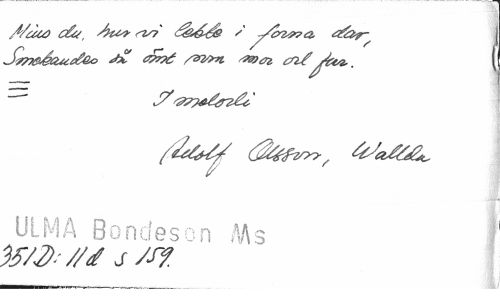 Mins du, hur vi lekte i forna dar,
Smekandes så ömt som mor och far.
I melodi
Adolf Olsson, Wallda
ULMA Bondeson Ms
351D: 11d s 159.